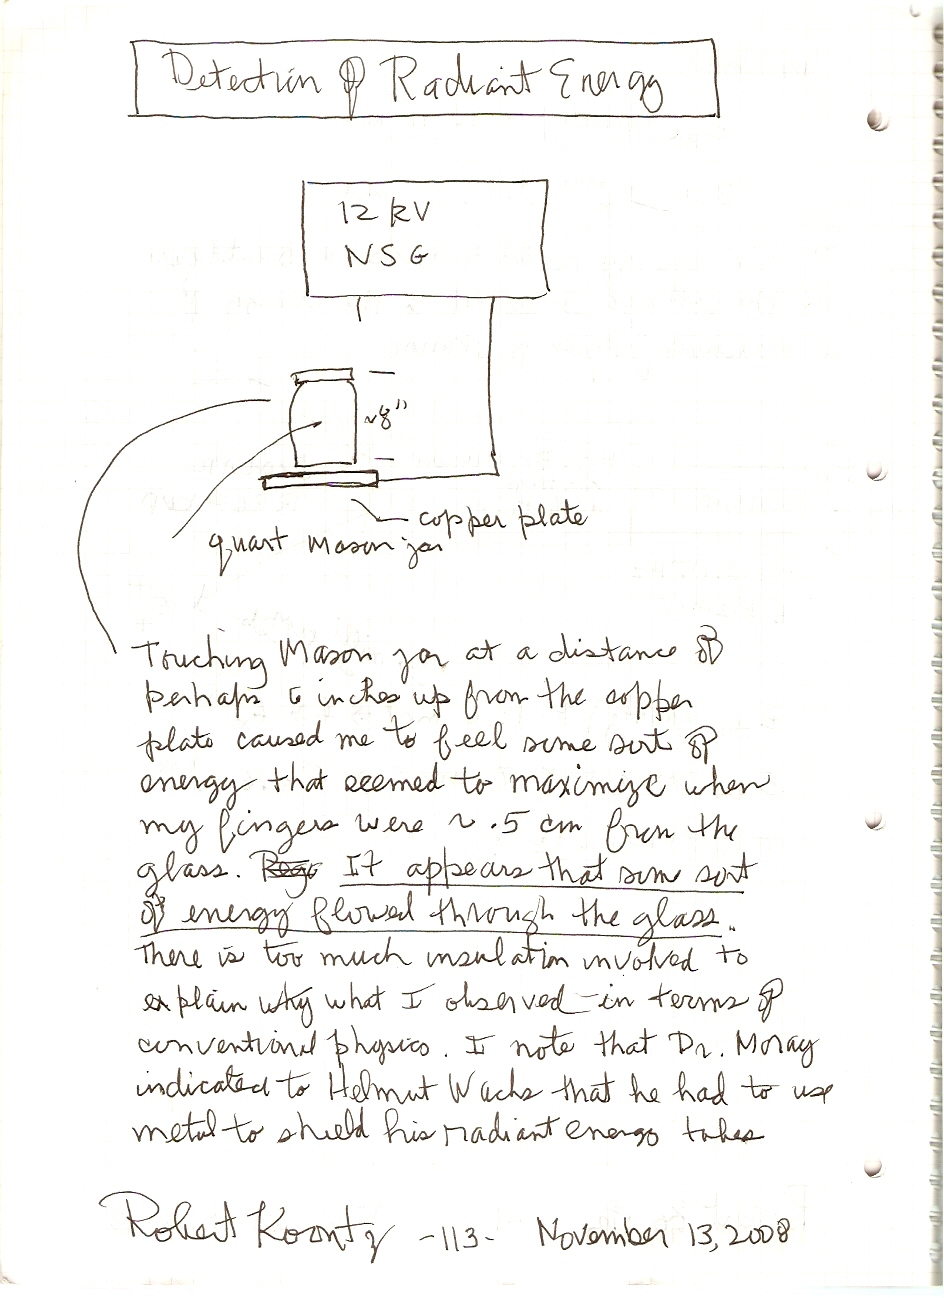 Detection of Radiant Energy
12 kV
NSG
~8"
copper plate
quart Mason jar
Touching Mason jar at a distance of
perhaps 6 inches up from the copper
plate caused me to feel some sort of
energy that seemed to maximize when
my fingers were ~ .5 cm from the
glass. It appears that some sort
of energy flowed through the glass.
There is too much insulation involved to
explain why what I observed in terms of
conventional physics. I note that Dr. Moray
indicated to Helmut Wachs that he had to use
metal to shield his radiant energy tubes
Robert Koontz -113- November 13, 2008